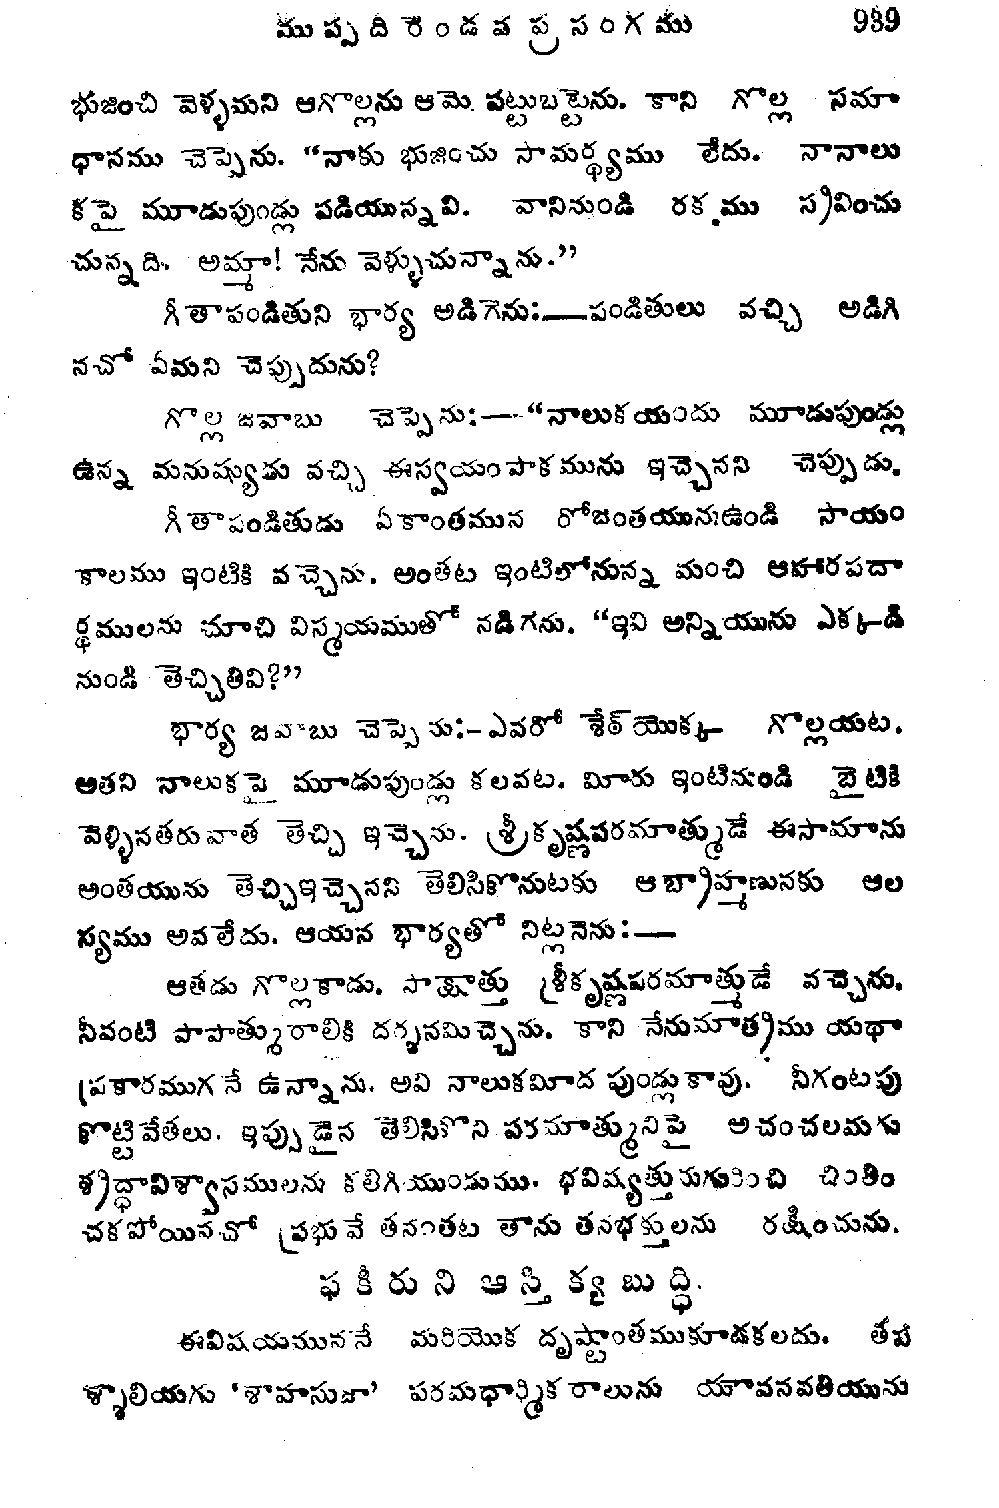 ముప్పదిరెండవ ప్రసంగము 939
భుజించి వెళ్ళమని ఆగొల్లను ఆమె పట్టుబట్టెను. కాని గొల్ల సమా
ధానము చెప్పెను. “నాకు భుజించు సామర్థ్యము లేదు. నానాలు
కపై మూడుపుండ్లు పడియున్నవి. వానినుండి రక్తము స్రవించు
చున్నది. అమ్మా! నేను వెళ్ళుచున్నాను.”
గీతాపండితుని భార్య అడిగెను:—పండితులు వచ్చి అడిగి
నచో ఏమని చెప్పుదును?
గొల్ల జవాబు చెప్పెను:—“నాలుకయందు మూడుపుండ్లు
ఉన్న మనుష్యుడు వచ్చి ఈస్వయంపాకమును ఇచ్చెనని చెప్పుడు.
గీతాపండితుడు ఏకాంతమున రోజంతయునుఉండి సాయం
కాలము ఇంటికి వచ్చెను. అంతట ఇంటిలోనున్న మంచి ఆహారపదా
ర్థములను చూచి విస్మయముతో నడిగను. “ఇవి అన్నియును ఎక్కడి
నుండి తెచ్చితివి?”
భార్య జవాబు చెప్పెను:–ఎవరో శేఠ్‌యొక్క గొల్లయట.
అతని నాలుకపై మూడుపుండ్లు కలవట. మీరు ఇంటినుండి బైటికి
వెళ్ళినతరువాత తెచ్చి ఇచ్చెను. శ్రీకృష్ణపరమాత్ముడే ఈసామాను
అంతయును తెచ్చిఇచ్చెనని తెలిసికొనుటకు ఆబ్రాహ్మణునకు ఆల
స్యము అవలేదు. ఆయన భార్యతో నిట్లనెను:—
ఆతడు గొల్లకాడు. సాక్షాత్తు శ్రీకృష్ణపరమాత్ముడే వచ్చెను.
నీవంటి పాపాత్మురాలికి దర్శనమిచ్చెను. కాని నేనుమాత్రము యథా
ప్రకారముగనే ఉన్నాను. అవి నాలుకమీద పుండ్లుకావు. నీగంటపు
కొట్టివేతలు. ఇప్పుడైన తెలిసికొని పరమాత్మునిపై అచంచలమగు
శ్రద్ధావిశ్వాసములను కలిగియుండుము. భవిష్యత్తునుగురించి చింతిం
చకపోయినచో ప్రభువే తనంతట తాను తనభక్తులను రక్షించును.
ఫకీరుని ఆస్తిక్యబుద్ధి.
ఈవిషయముననే మరియొక దృష్టాంతముకూడకలదు. తప
శ్శాలియగు ‘శాహసుజా’ పరమధార్మికరాలును యౌవనవతియును